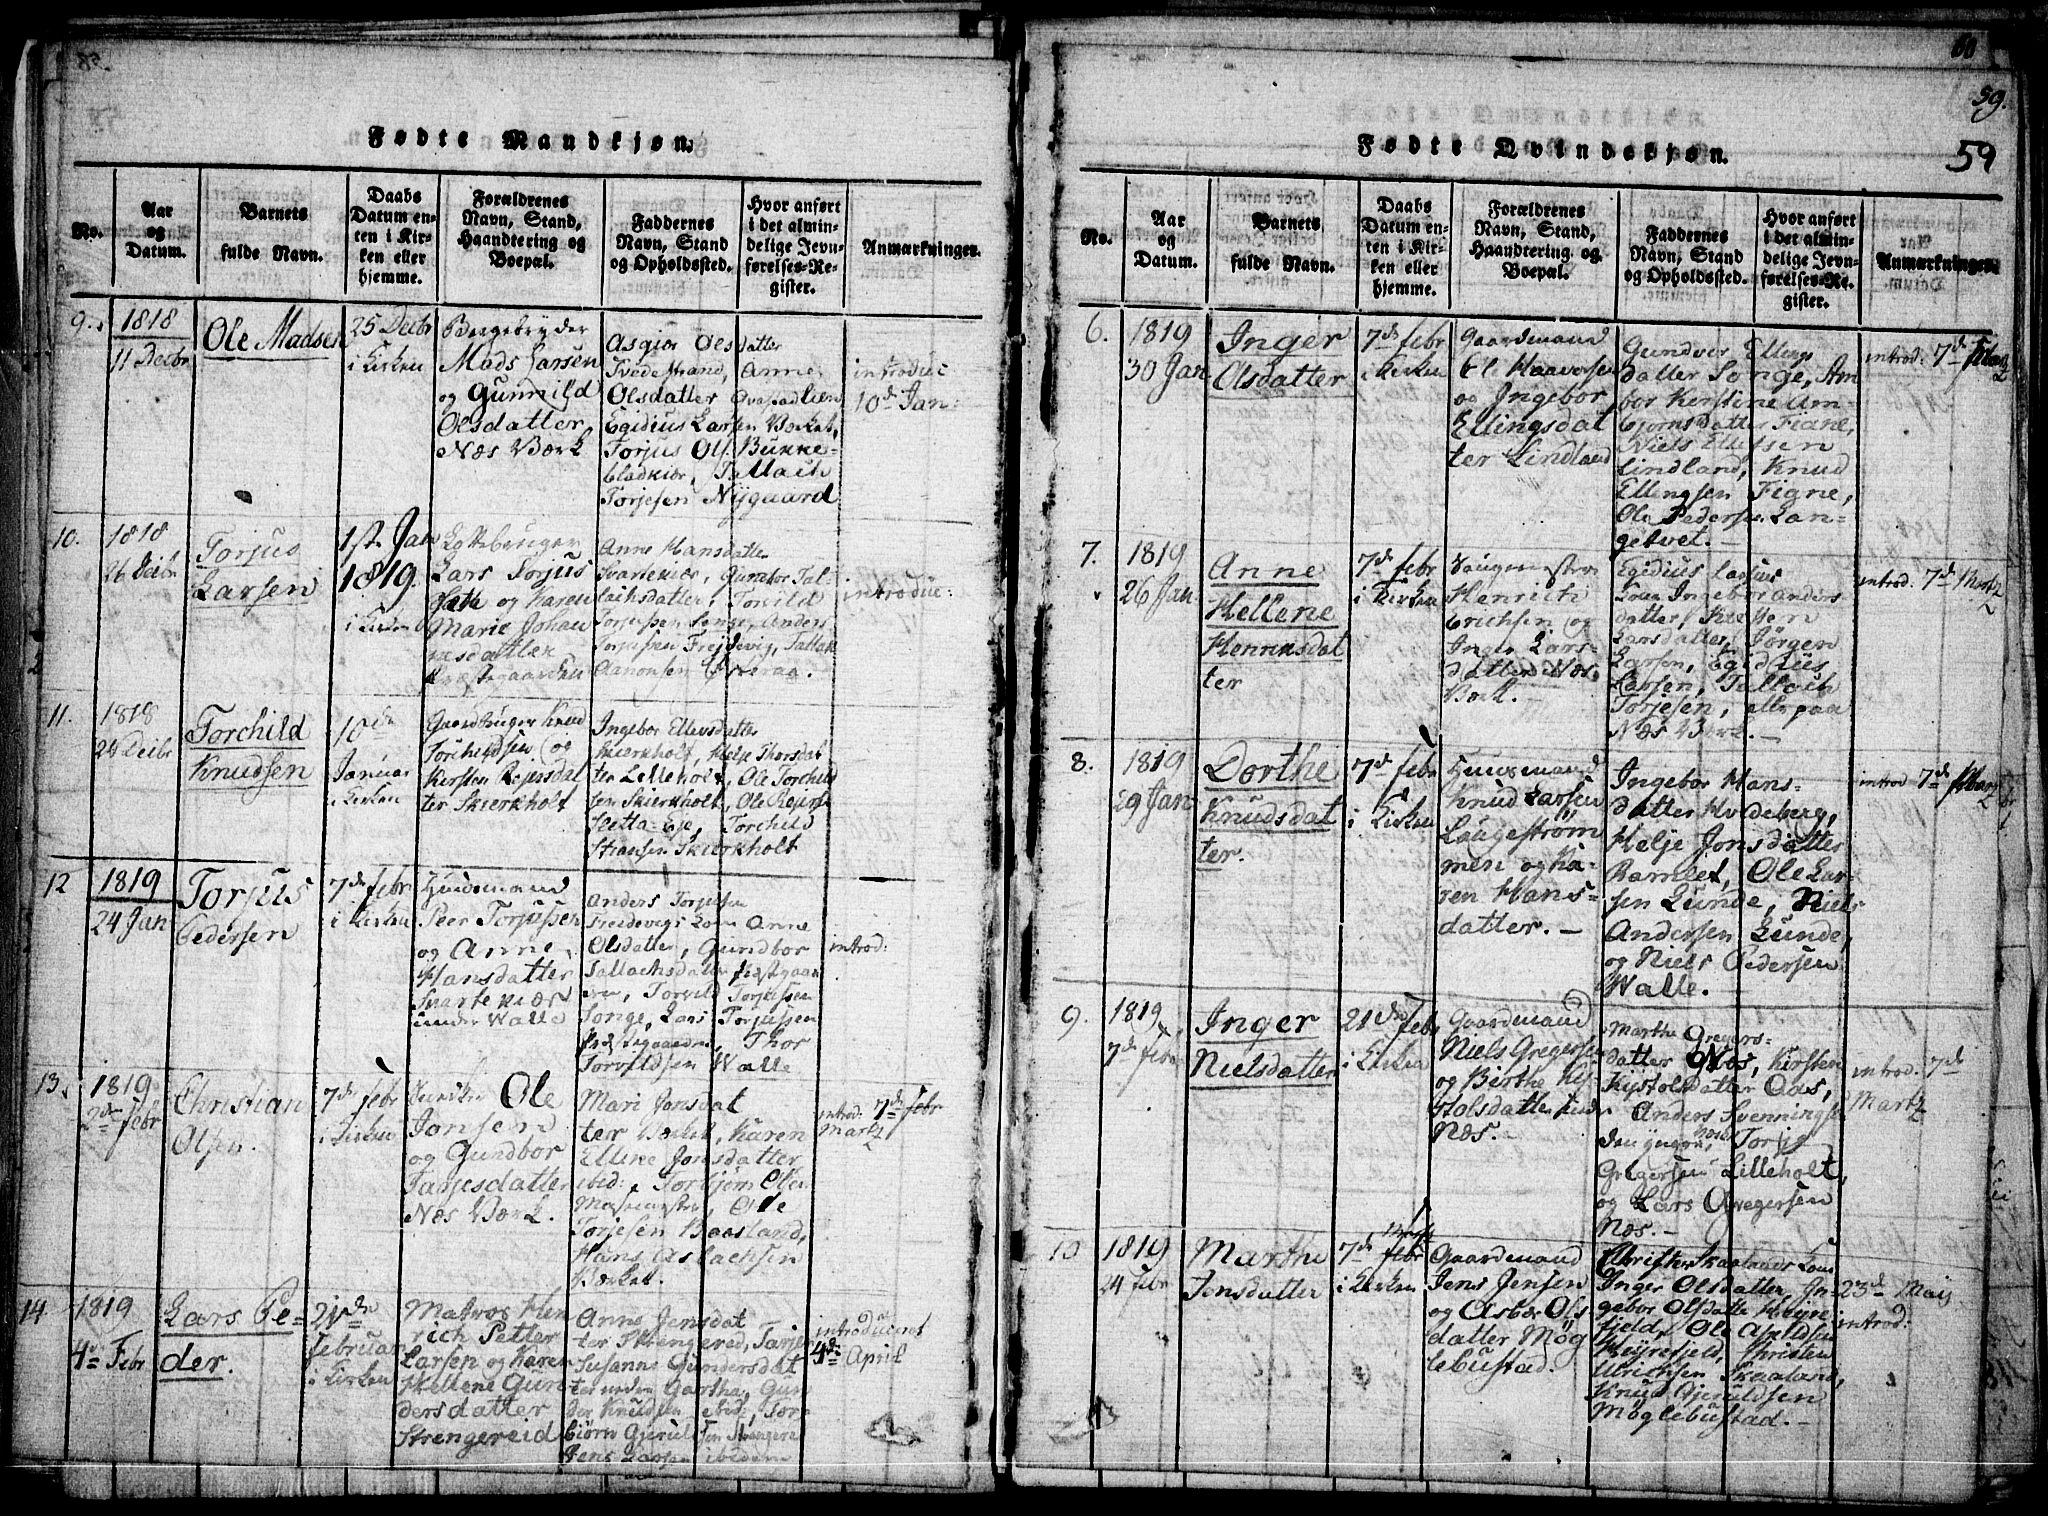 Fødte Mandkjøn.
No.
Aar
og
Datum.
Barnets
fulde Navn.
Daabs
Datum en-
ten i Kir-
ken eller
hjemme.
Forældrenes
Navn, Stand,
Haandtering og
Boepæl.
Faddernes
Navn, Stand
og Opholdssted.
Hvor anført
i det almin-
delige Jevn-
førelses-Re-
gister.
Anmærkninger.
9.
1818
11 Decbr
Ole Madsen
25 Decbr
i Kirken
Mads Larsen
og Gunnild
Olsdatter
Næs Værk
Asgier Olsdatter
Tvedestrand, Anne
Olsdatter
Egidius Larsen Værket,
Torjus Ols. Bukke-
Tallach
Torjesen Nygaard
introduc
10de Jan:
10.
1818
26 Decbr
Torjus
Larsen
1ste Jan
1819.
i Kirken
Lars Torjus
og Karen
Marie Johan
nesdatter
Anne Hansdatter
Svartekiær, Gunbor Tal-
lachsdatter, Torvild
Torjussen Songe, Anders
Torjussen Frejdevig, Tallak
Aanonsen
introduc:
11.
1818
24 Decbr
Torchild
Knudsen
10de
Januar
i Kirken
Gaardbruger Knud
Torchildsen og
Kirsten Reiersdat
ter Skierkholt
Ingebor Ellevsdatter
Skierkholt, Helje Thorsdat
ter Lilleholt, Ole Torchild
sen Skierkholt, Ole Reiers
Torchild
Skierkholt
12
1819
24 Jan
Torjus
Pedersen
7de febr
i Kirken
Huusmand
Peer Torjussen
og Anne
Hansdatter
Svartekiær
under Walle
Anders Torjusen
Freidevigs Kone Anne
Olsdatter, Gundbor
Tallachsdatter
Torvild Torjussen
Songe, Lars Torjussen
Thor
Torvildsen Walle
introd:
13.
1819
2den febr
Christian
Olsen.
7de febr
i Kirken
Ole
Jonsen
og Gundbor
Næs Værk.
Mari Jonsdat
ter Værket, Karen
Elline Jonsdatter
ibid: Torbjørn Olsen
Ole
Torjesen Baasland,
Hans Aslachsen
Værket.
introd: 7de febr
Martz
14
1819
4de Febr
Lars Pe-
der.
21de
februari
i Kirken
Matros Hen
rich Petter
Larsen og Karen
Hellene Gun
dersdatter
Strengereid
Anne Jensdat
ter Strengereid,
Susanne Gundersdat
ter
Knudsen ibid,
biørn Gjeruldsen
Jens Larsen ibidem
introduceret
4de April
60
59.
59
Fødte Qvindekjøn.
No.
Aar
og
Datum.
Barnets
fulde Navn.
Daabs
Datum en-
ten i Kir-
ken eller
hjemme.
Forældrenes
Navn, Stand,
Haandtering og
Boepæl.
Faddernes
Navn, Stand
og Opholdssted.
Hvor anført
i det almin-
delige Jevn-
førelses-Re-
gister.
Anmærkninger.
6.
1819
30 Jan
Inger
Olsdatter
7de febr
i Kirken
Gaardmand
Ol Haaversen
og Ingebor
Ellingsdat
ter Lindland
Gundvor Ellings
datter Songe, Am
bor Kerstine Am-
bjørnsdatter Fiane,
Niels Ellefsen
Lindland, Knud
Ellingsen Fiane,
Ole Pedersen Lan-
getvet.
introd: 7de
7.
1819
26 Jan
Anne
Hellene
Henrichsdat
ter
7de febr
i Kirken
Henrich
Erichsen og
Inger Lars-
datter Næs
Værk.
Egidius Larsens
Kone Ingebor Anders
datter,
Larsdatter, Jørgen
Larsen, Egidius
Larsen, Tallach
Torjesen, alle paa
Næs Værk.
introd. 7de Martz
8.
1819
29 Jan
Dorthe
Knudsdat
ter.
7de febr
i Kirken
Huusmand
Knud Larsen
Laugestrøm
men og Ka-
ren Hans-
datter.
Ingebor Hans-
datter Holdeberg,
Helje Jonsdatter
Ramlet, Ole Lar-
sen Lunde, Niels
Andersen Lunde,
og Niels Pedersen
Walle.
introd 7de Martz
9.
1819
7de febr
Inger
Nielsdatter
21de febr
i Kirken
Gaardmand
Niels Gregersen
og Birthe Ki-
stolsdatter
Næs.
Marthe Gregers-
datter Næs, Kirsten
Kistolsdatter Oas,
Anders Svenningsen
den yngere Næs, Torjes
Gregersen Lilleholt,
og Lars Gregersen
Næs.
introd. 7de
Martz
10
1819
24 febr
Marthe
Jensdatter
7de
Martz
febr
i Kirken
Gaardmand
Jens Jensen
og Asbør Ols
datter Møg
lebustad.
Christen Skaalands Kone
Inger Olsdatter, In-
gebor Olsdatter Heire-
field, Ole Axeldsen
Heirefjeld, Christen
Ulrichsen Skaaland,
Knud Gjeruldsen
Møglebustad.
23de Maij
introd: